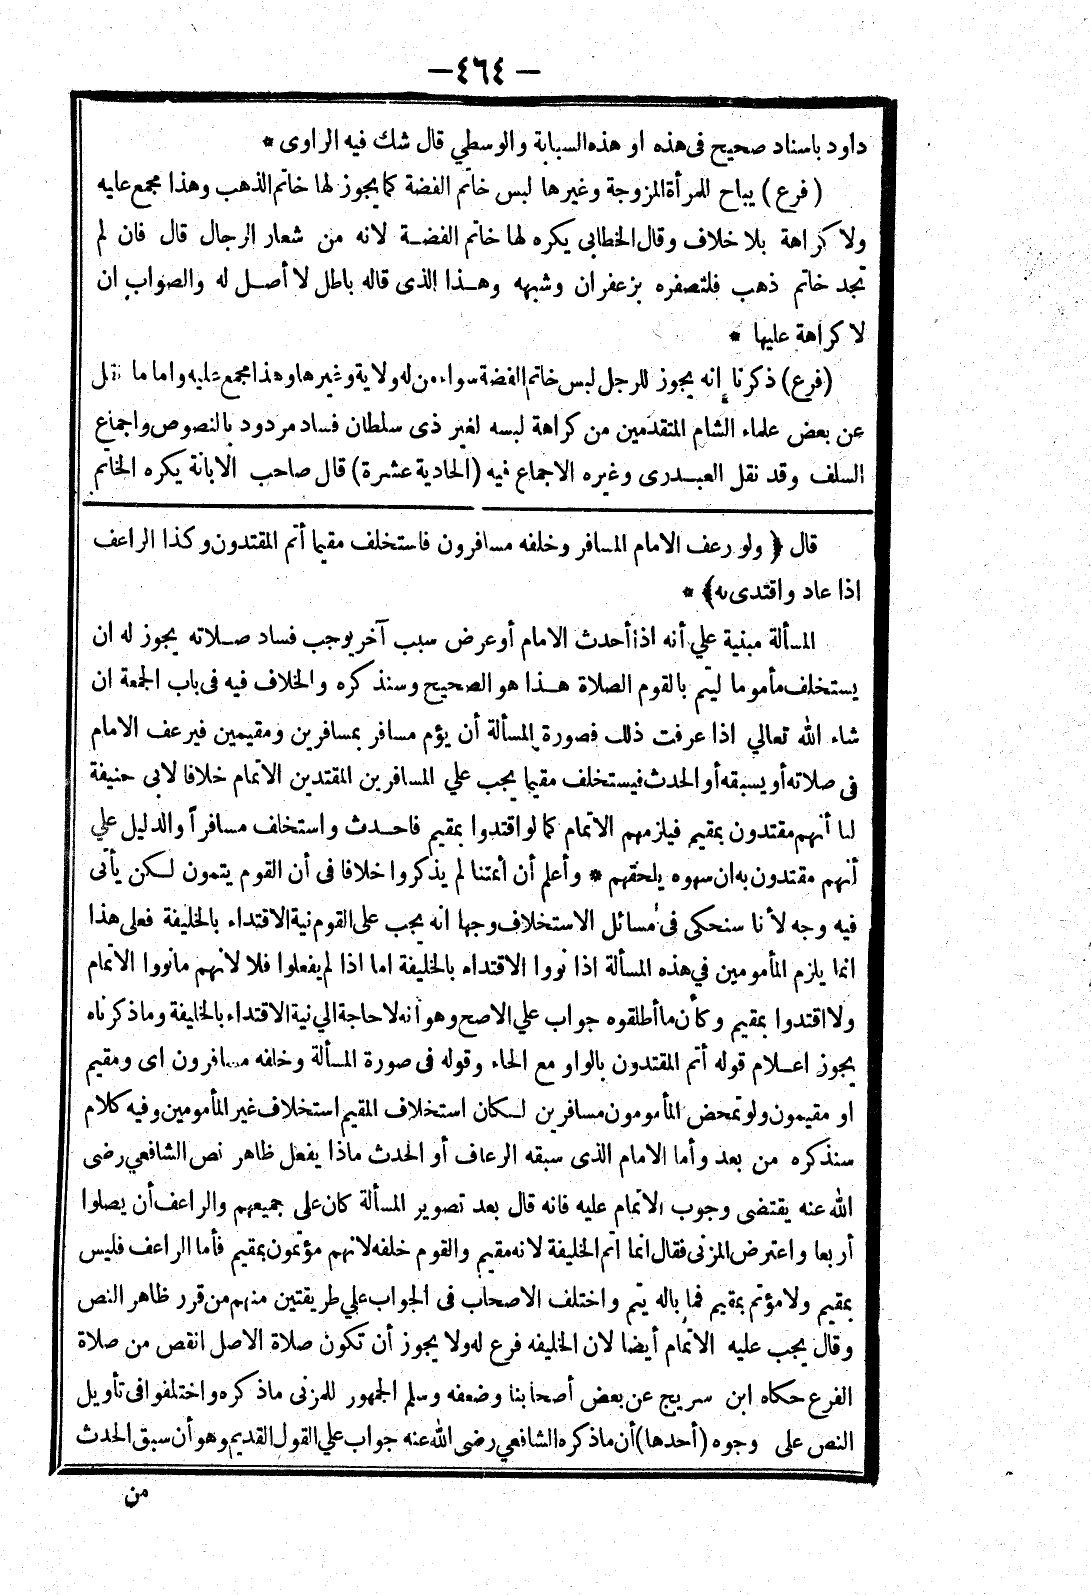 — ٤٦٤ —
داود باسناد صحيح فى هذه او هذه السبابة والوسطي قال شك فيه الراوى *
(فرع) يباح للمرأة المزوجة وغيرها لبس خاتم الفضة كما يجوز لها خاتم الذهب وهذا مجمع عليه
ولا كراهة بلا خلاف وقال الخطابى يكره لها خاتم الفضة لانه من شعار الرجال قال فان لم
تجد خاتم ذهب فلتصفره بزعفران وشبهه وهذا الذى قاله باطل لا أصل له والصواب ان
لا كراهة عليها *
(فرع) ذكرنا إنه يجوز للرجل لبس خاتم الفضة سواء من له ولاية وغيرها وهذا مجمع عليه واما ما نقل
عن بعض علماء الشام المتقدمين من كراهة لبسه لغير ذى سلطان فساد مردود بالنصوص واجماع
السلف وقد نقل العبدرى وغيره الاجماع فيه (الحادية عشرة) قال صاحب الابانة يكره الخاتم
قال ﴿ ولو رعف الامام المسافر وخلفه مسافرون فاستخلف مقيما أتم المقتدون وكذا الراعف
اذا عاد واقتدى به﴾ *
المسألة مبنية علي أنه اذا أحدث الامام أو عرض سبب آخر يوجب فساد صلاته يجوز له ان
يستخلف مأموما ليتم بالقوم الصلاة هذا هو الصحيح وسنذكره والخلاف فيه فى باب الجمعة ان
شاء الله تعالي اذا عرفت ذلك فصورة المسألة أن يؤم مسافر بمسافرين ومقيمين فيرعف الامام
فى صلاته أو يسبقه أو الحدث فيستخلف مقيما يجب علي المسافرين المقتدين الاتمام خلافا لابى حنيفة
لنا أنهم مقتدون بمقيم فيلزمهم الاتمام كما لو اقتدوا بمقيم فاحدث واستخلف مسافراً والدليل علي
أنهم مقتدون به ان سهوه يلحقهم * وأعلم أن أئمتنا لم يذكروا خلافا فى أن القوم يتمون لكن يأتى
فيه وجه لأنا سنحكى فى مسائل الاستخلاف وجها انه يجب على القوم نية الاقتداء بالخليفة فعلى هذا
انما يلزم المأمومين في هذه المسألة اذا نووا الاقتداء بالخليفة اما اذا لم يفعلوا فلا لانهم ما نووا الاتمام
ولا اقتدوا بمقيم وكأن ما أطلقوه جواب علي الاصح وهو أنه لا حاجة الي نية الاقتداء بالخليفة وما ذكرناه
يجوز اعلام قوله أتم المقتدون بالواو مع الحاء وقوله فى صورة المسألة وخلفه مسافرون اى ومقيم
او مقيمون ولو تمحض المأمومون مسافرين لكان استخلاف المقيم استخلاف غير المأمومين وفيه كلام
سنذكره من بعد وأما الامام الذى سبقه الرعاف أو الحدث ماذا يفعل ظاهر نص الشافعي رضى
الله عنه يقتضى وجوب الاتمام عليه فانه قال بعد تصوير المسألة كان على جميعهم والراعف أن يصلوا
أربعا واعترض المزنى فقال انما اتم الخليفة لانه مقيم والقوم خلفه لانهم مؤتمون بمقيم فأما الراعف فليس
بمقيم ولا مؤتم بمقيم فما باله يتم واختلف الاصحاب فى الجواب علي طريقتين منهم من قرر ظاهر النص
وقال يجب عليه الاتمام أيضا لان الخليفه فرع له ولا يجوز أن تكون صلاة الاصل انقص من صلاة
الفرع حكاه ابن سريج عن بعض أصحابنا وضعفه وسلم الجمهور للمزنى ما ذكره واختلفوا فى تأويل
النص على وجوه (أحدها) أن ما ذكره الشافعي رضى الله عنه جواب علي القول القديم وهو أن سبق الحدث
من